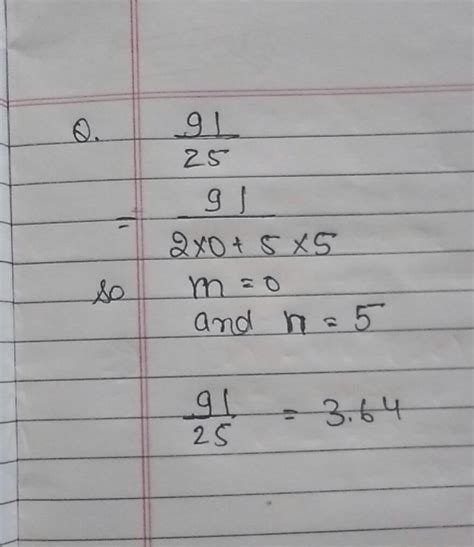 Q. 91
25
= 91
2×0+ 5 ×5
so m = 0
and n = 5
91
25 = 3.64